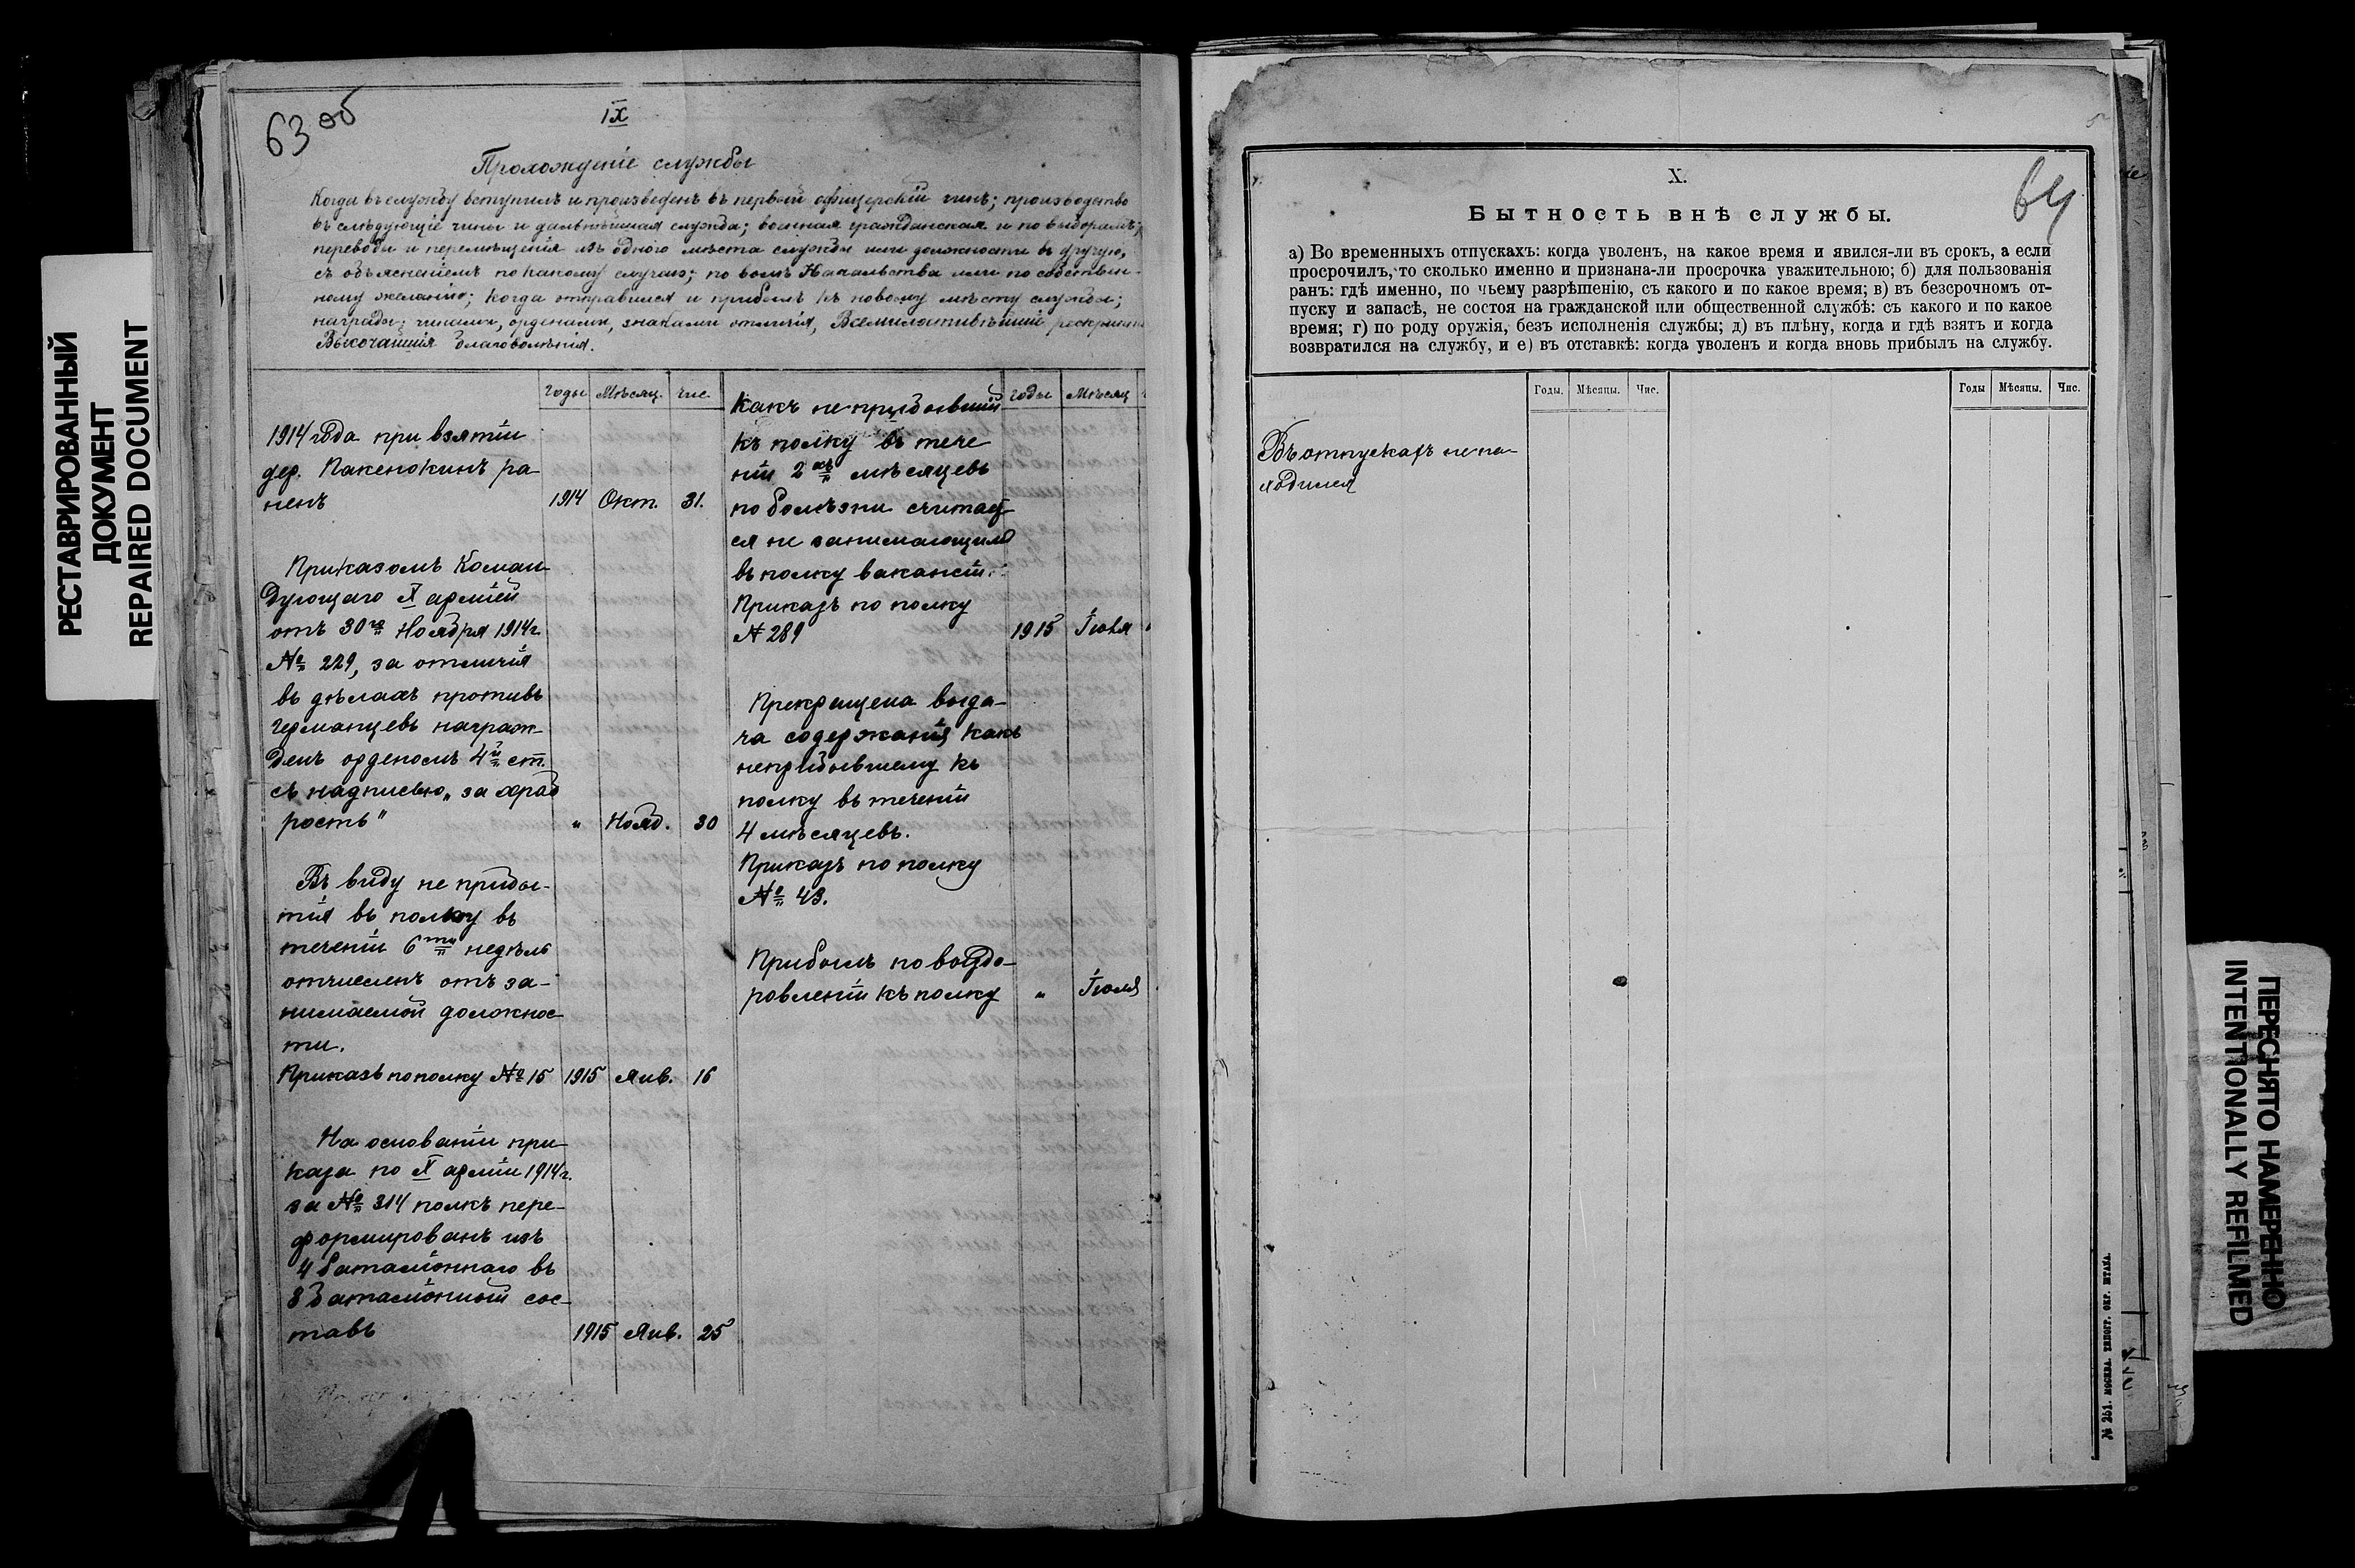 РЕСТАВРИРОВАННЫЙ
ДОКУМЕНТ
REPAIRED DOCUMENT
63 об
IX
Прохожденіе службы
Когда въ службу вступилъ и произведенъ въ первый офицерскій чинъ; производство
въ слѣдующіе чины и дальнѣйшая служба; военная гражданская и по выборамъ;
переводы и перемѣщенія изъ одного мѣста службы или должности въ другую,
съ объясненіемъ по какому случаю; по волѣ Начальства или по собствен-
ному желанію; когда отправился и прибылъ къ новому мѣсту службы;
награды: чинами, орденами, знаками отличія, Всемилостивѣйшіе рескрипты
Высочайшія благоволенія.
Годы Мѣсяц. Чис.
1914 года при взятіи
дер. Пакеножинъ ра-
ненъ 1914 Окт. 31.
Приказомъ Коман-
дующаго X арміей
отъ 30го Ноября 1914 г.
№ 229, за отличія
въ дѣлахъ противъ
германцевъ награж-
денъ орденомъ 4й ст.
съ надписью „за храб
рость" " Нояб. 30
Въ виду не прибы-
тія въ полку въ
теченіи 6ти недѣль
отчисленъ отъ за-
нимаемой должнос-
ти.
Приказъ по полку № 15 1915 Янв. 16
На основаніи при-
каза по X арміи 1914 г.
за № 314 полкъ пере-
формированъ изъ
4 баталіоннаго въ
3 баталіонный сос-
тавъ 1915 Янв. 25
Годы Мѣсяц
Какъ не прибывшій
къ полку въ тече
ніи 2хъ мѣсяцевъ
по болѣзни считает-
ся не занимающимъ
въ полку вакансіи.
Приказъ по полку
№ 289 1915 Іюня
Прекращена выда-
ча содержанія какъ
неприбывшему къ
полку въ теченіи
4 мѣсяцевъ.
Приказъ по полку
№ 43.
Прибылъ по выздо-
ровленіи къ полку " Іюля
64
X.
Бытность внѣ службы.
а) Во временныхъ отпускахъ: когда уволенъ, на какое время и явился-ли въ срокъ, а если
просрочилъ, то сколько именно и признана-ли просрочка уважительною; б) для пользованія
ранъ: гдѣ именно, по чьему разрѣшенію, съ какого и по какое время; в) въ безсрочномъ от-
пуску и запасѣ, не состоя на гражданской или общественной службѣ: съ какого и по какое
время; г) по роду оружія, безъ исполненія службы; д) въ плѣну, когда и гдѣ взятъ и когда
возвратился на службу, и е) въ отставкѣ: когда уволенъ и когда вновь прибылъ на службу.
Годы. Мѣсяцы. Чис. Годы Мѣсяцы. Чис.
Въ отпускахъ не на-
ходился
№ 251. МОСКВА. ТИПОГР. ОКР. ШТАБА.
ПЕРЕСНЯТО НАМЕРЕННО
INTENTIONALLY REFILMED